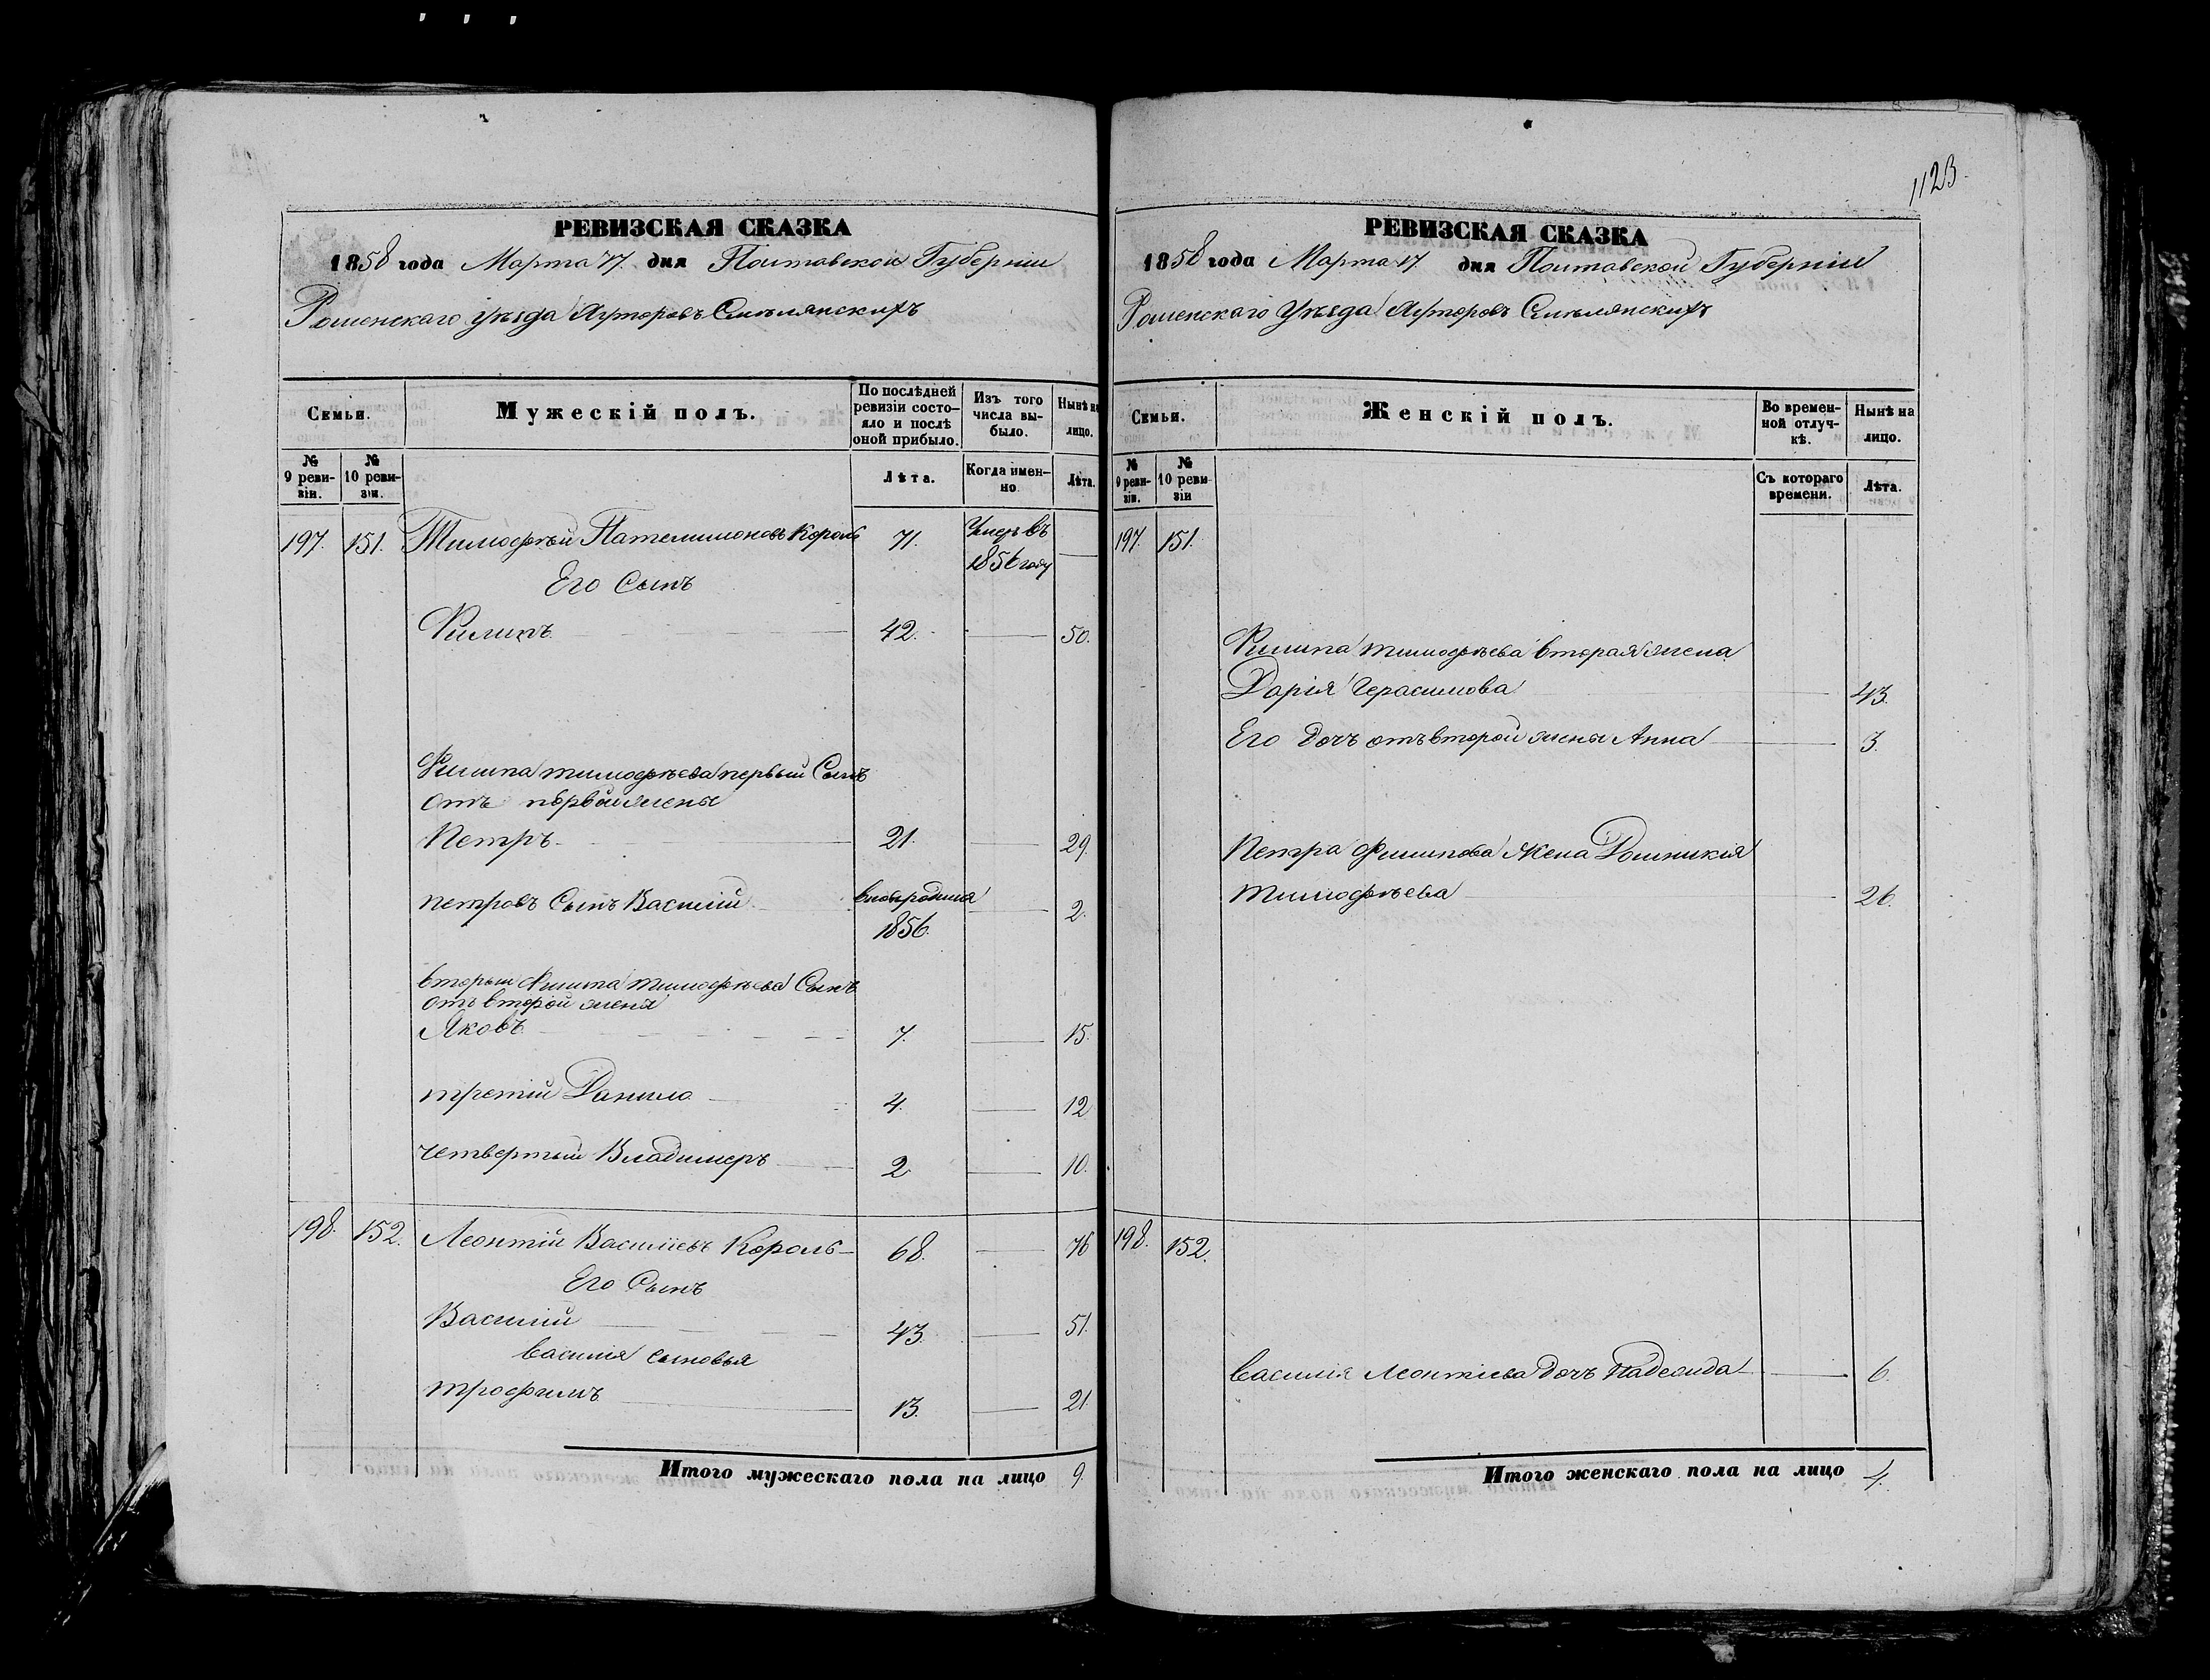 1123.
РЕВИЗСКАЯ СКАЗКА
1858 года Марта 17. дня Полтавской Губерніи
Роменскаго уѣзда Хуторовъ Смѣлянскихъ
Семьи.
Мужескій полъ.
По послѣдней ревизіи состояло и послѣ оной прибыло.
Изъ того числа выбыло.
Нынѣ на лицо.
№ 9 ревизіи.
№ 10 ревизіи.
Лѣта.
Когда именно.
Лѣта.
197. 151. Тимофѣй Пателимоновъ Король 71. Умеръ въ 1856 году —
Его Сынъ
Филипъ 42. — 50.
Филипа тимофѣева первый Сынъ
отъ первой жены
Петръ 21. — 29.
петровъ Сынъ Василій 1856. — 2.
вторый Филипа тимофѣева Сынъ
отъ второй жены
Яковъ 7. — 15.
третій Данило 4. — 12
четвертый Владимеръ 2 — 10.
198. 152. Леонтій Василіевъ Король 68. — 76
Его Сынъ
Василій 43. — 51.
Василія сыновья
трофимъ 13. — 21.
Итого мужескаго пола на лицо 9.
РЕВИЗСКАЯ СКАЗКА
1858 года Марта 17. дня Полтавской Губерніи
Роменскаго Уѣзда Хуторовъ Смѣлянскихъ
Семьи.
Женскій полъ.
Во временной отлучкѣ.
Нынѣ на лицо.
№ 9 ревизіи.
№ 10 ревизіи
Съ котораго времени.
Лѣта.
197. 151.
Филипа тимофѣева вторая жена
Дарія Герасимова — 43.
Его дочъ отъ второй жены Анна — 3.
Петра Филипова Жена Домникія
тимофѣева — 26.
198. 152.
Василія Леонтіева дочъ Надежда — 6.
Итого женскаго пола на лицо 4.